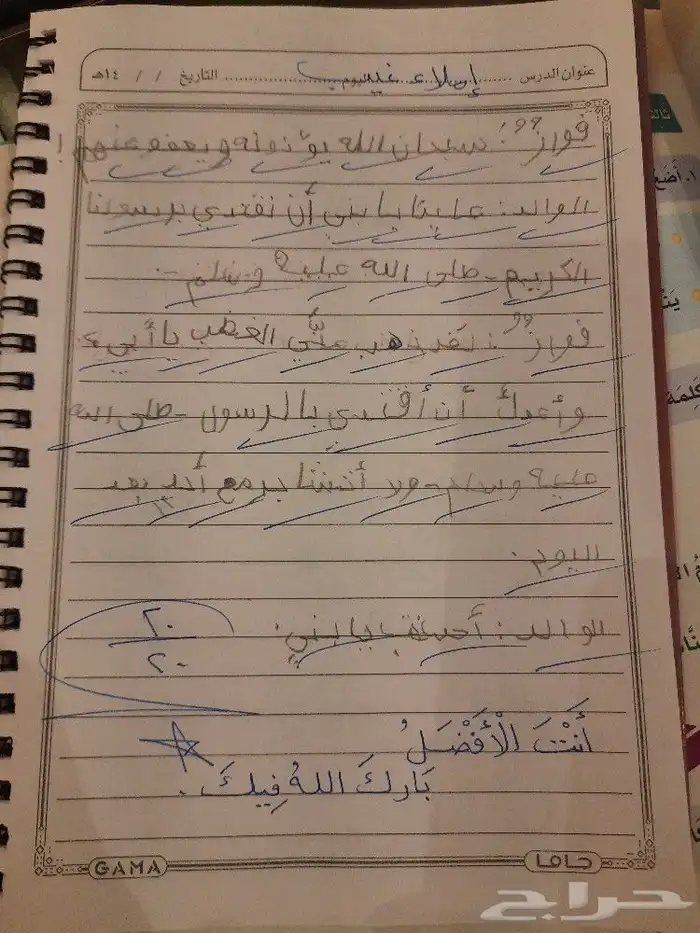 عنوان الدرس إملاء غيب اليوم التاريخ / / ١٤هـ
فواز: سبحان الله يؤذونه ويعفو عنهم!
الوالد: علينا يا بني أن نقتدي برسولنا
الكريم - صلى الله عليه وسلم -.
فواز: لقد ذهب عنّي الغضب يا أبي،
وأعدك أن أقتدي بالرسول - صلى الله
عليه وسلم - ولا أتشاجر مع أحد بعد
اليوم.
الوالد: أحسنت يا بني.
٢٠
٢٠
أَنْتَ الْأَفْضَلُ
بَارَكَ اللهُ فِيكَ.
GAMA جاما
حراج
ثالث
١. أضع